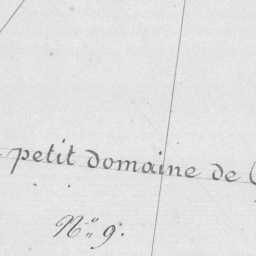 petit domaine de
N.º 9.